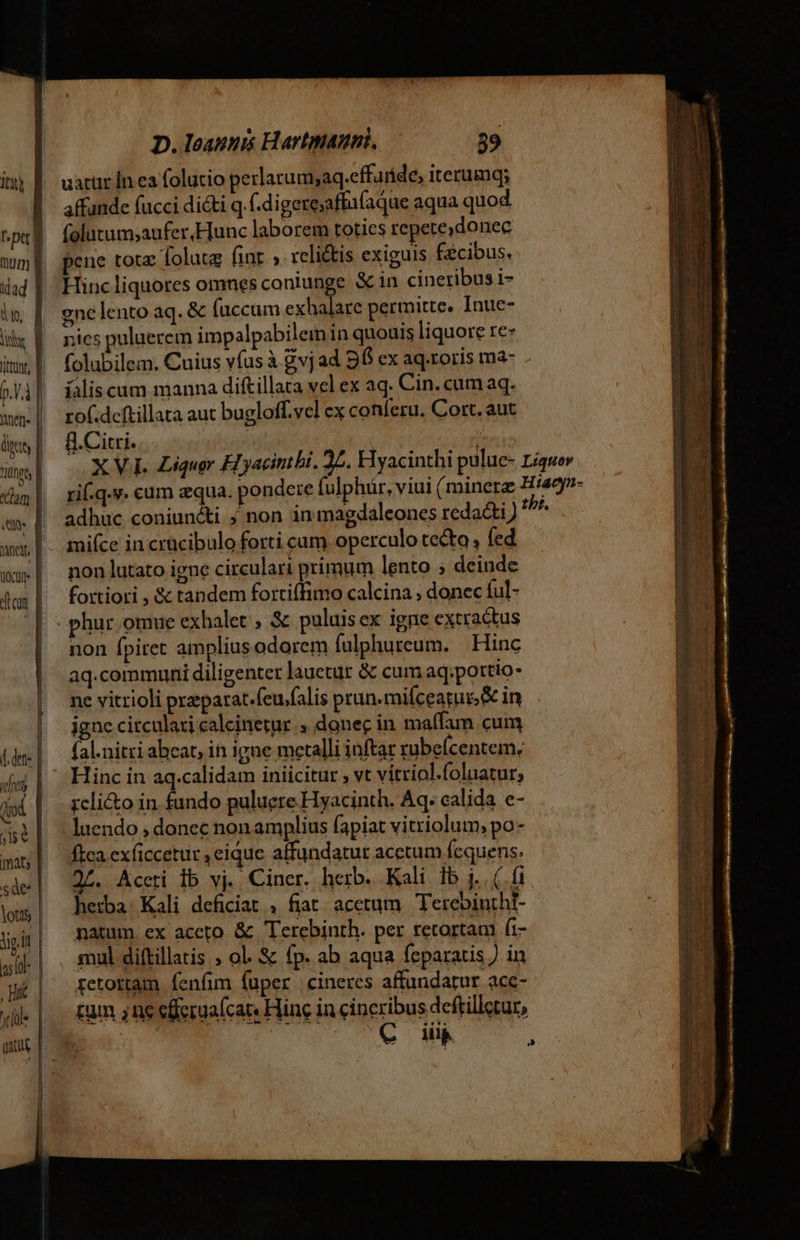 D. Ioannis Hartmanni. 39
uatur in ea ſolutio perlarum,aq.effunde, iterumq;
affunde ſucci dicti q.ſ.digere,affuſaque aqua quod
ſolutum,aufer.Hunc laborem toties repete,donec
pene totæ ſolutæ ſint , relictis exiguis fæcibus.
Hinc liquores omnes coniunge & in cineribus i-
gne lento aq. & ſuccum exhalare permitte. Inue-
nies puluerem impalpabilem in quouis liquore re-
ſolubilem. Cuius vſus à gvj ad ℈ß ex aq.roris ma-
ialis cum manna diſtillata vel ex aq. Cin. cum aq.
roſ.deſtillata aut bugloſſ.vel ex conſeru. Cort. aut
fl.Citri.
XVI. Liquor Hyacinthi. ♃. Hyacinthi pulue- Liquor
riſ.q.v. cum æqua. pondere ſulphur. viui (mineræ Hiacyn-
adhuc coniuncti , non in magdaleones redacti) thi.
miſce in crucibulo forti cum operculo tecto , ſed
non lutato igne circulari primum lento , deinde
fortiori , & tandem fortiſſimo calcina , donec ſul-
phur omne exhalet , & puluis ex igne extractus
non ſpiret amplius odorem ſulphureum. Hinc
aq.communi diligenter lauetur & cum aq.portio-
ne vitrioli præparat.ſeu.ſalis prun.miſceatur,& in
igne circulari calcinetur , donec in maſſam cum
ſal.nitri abeat, in igne metalli inſtar rubeſcentem.
Hinc in aq.calidam iniicitur , vt vitriol.ſoluatur,
relicto in fundo puluere Hyacinth. Aq. calida e-
luendo , donec non amplius ſapiat vitriolum, po-
ſtea exſiccetur , eique affundatur acetum ſequens.
♃. Aceti ℔ vj. Ciner. herb. Kali ℔ j. ( ſi
herba Kali deficiat , fiat acetum Terebinthi-
natum ex aceto & Terebinth. per retortam ſi-
mul diſtillatis , ol. & ſp. ab aqua ſeparatis ) in
retortam ſenſim ſuper cineres affundatur ace-
tum , ne efferuaſcat. Hinc in cineribus deſtilletur,
C iiij